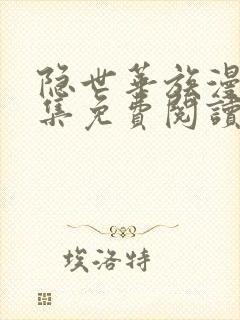 隐世华族漫
集免費閱讀
埃洛特